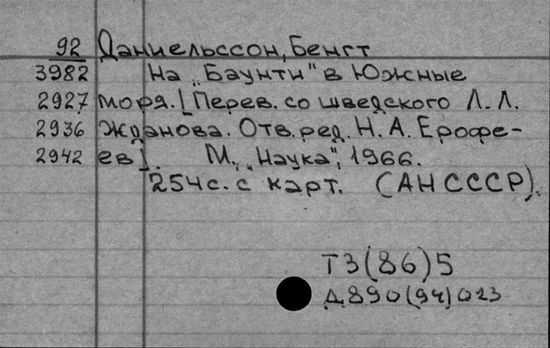 92 Даниельссон, Бенгт
3982 На „Баунти" в Южные
2927 моря. [Перев. со шведского Л. Л.
2936 Жданова. Отв. ред. Н. А. Ерофе-
2942 ев]. М., „Наука", 1966.
254 с. с карт. (АН СССР).
Т3(86)5
Д890(94)023